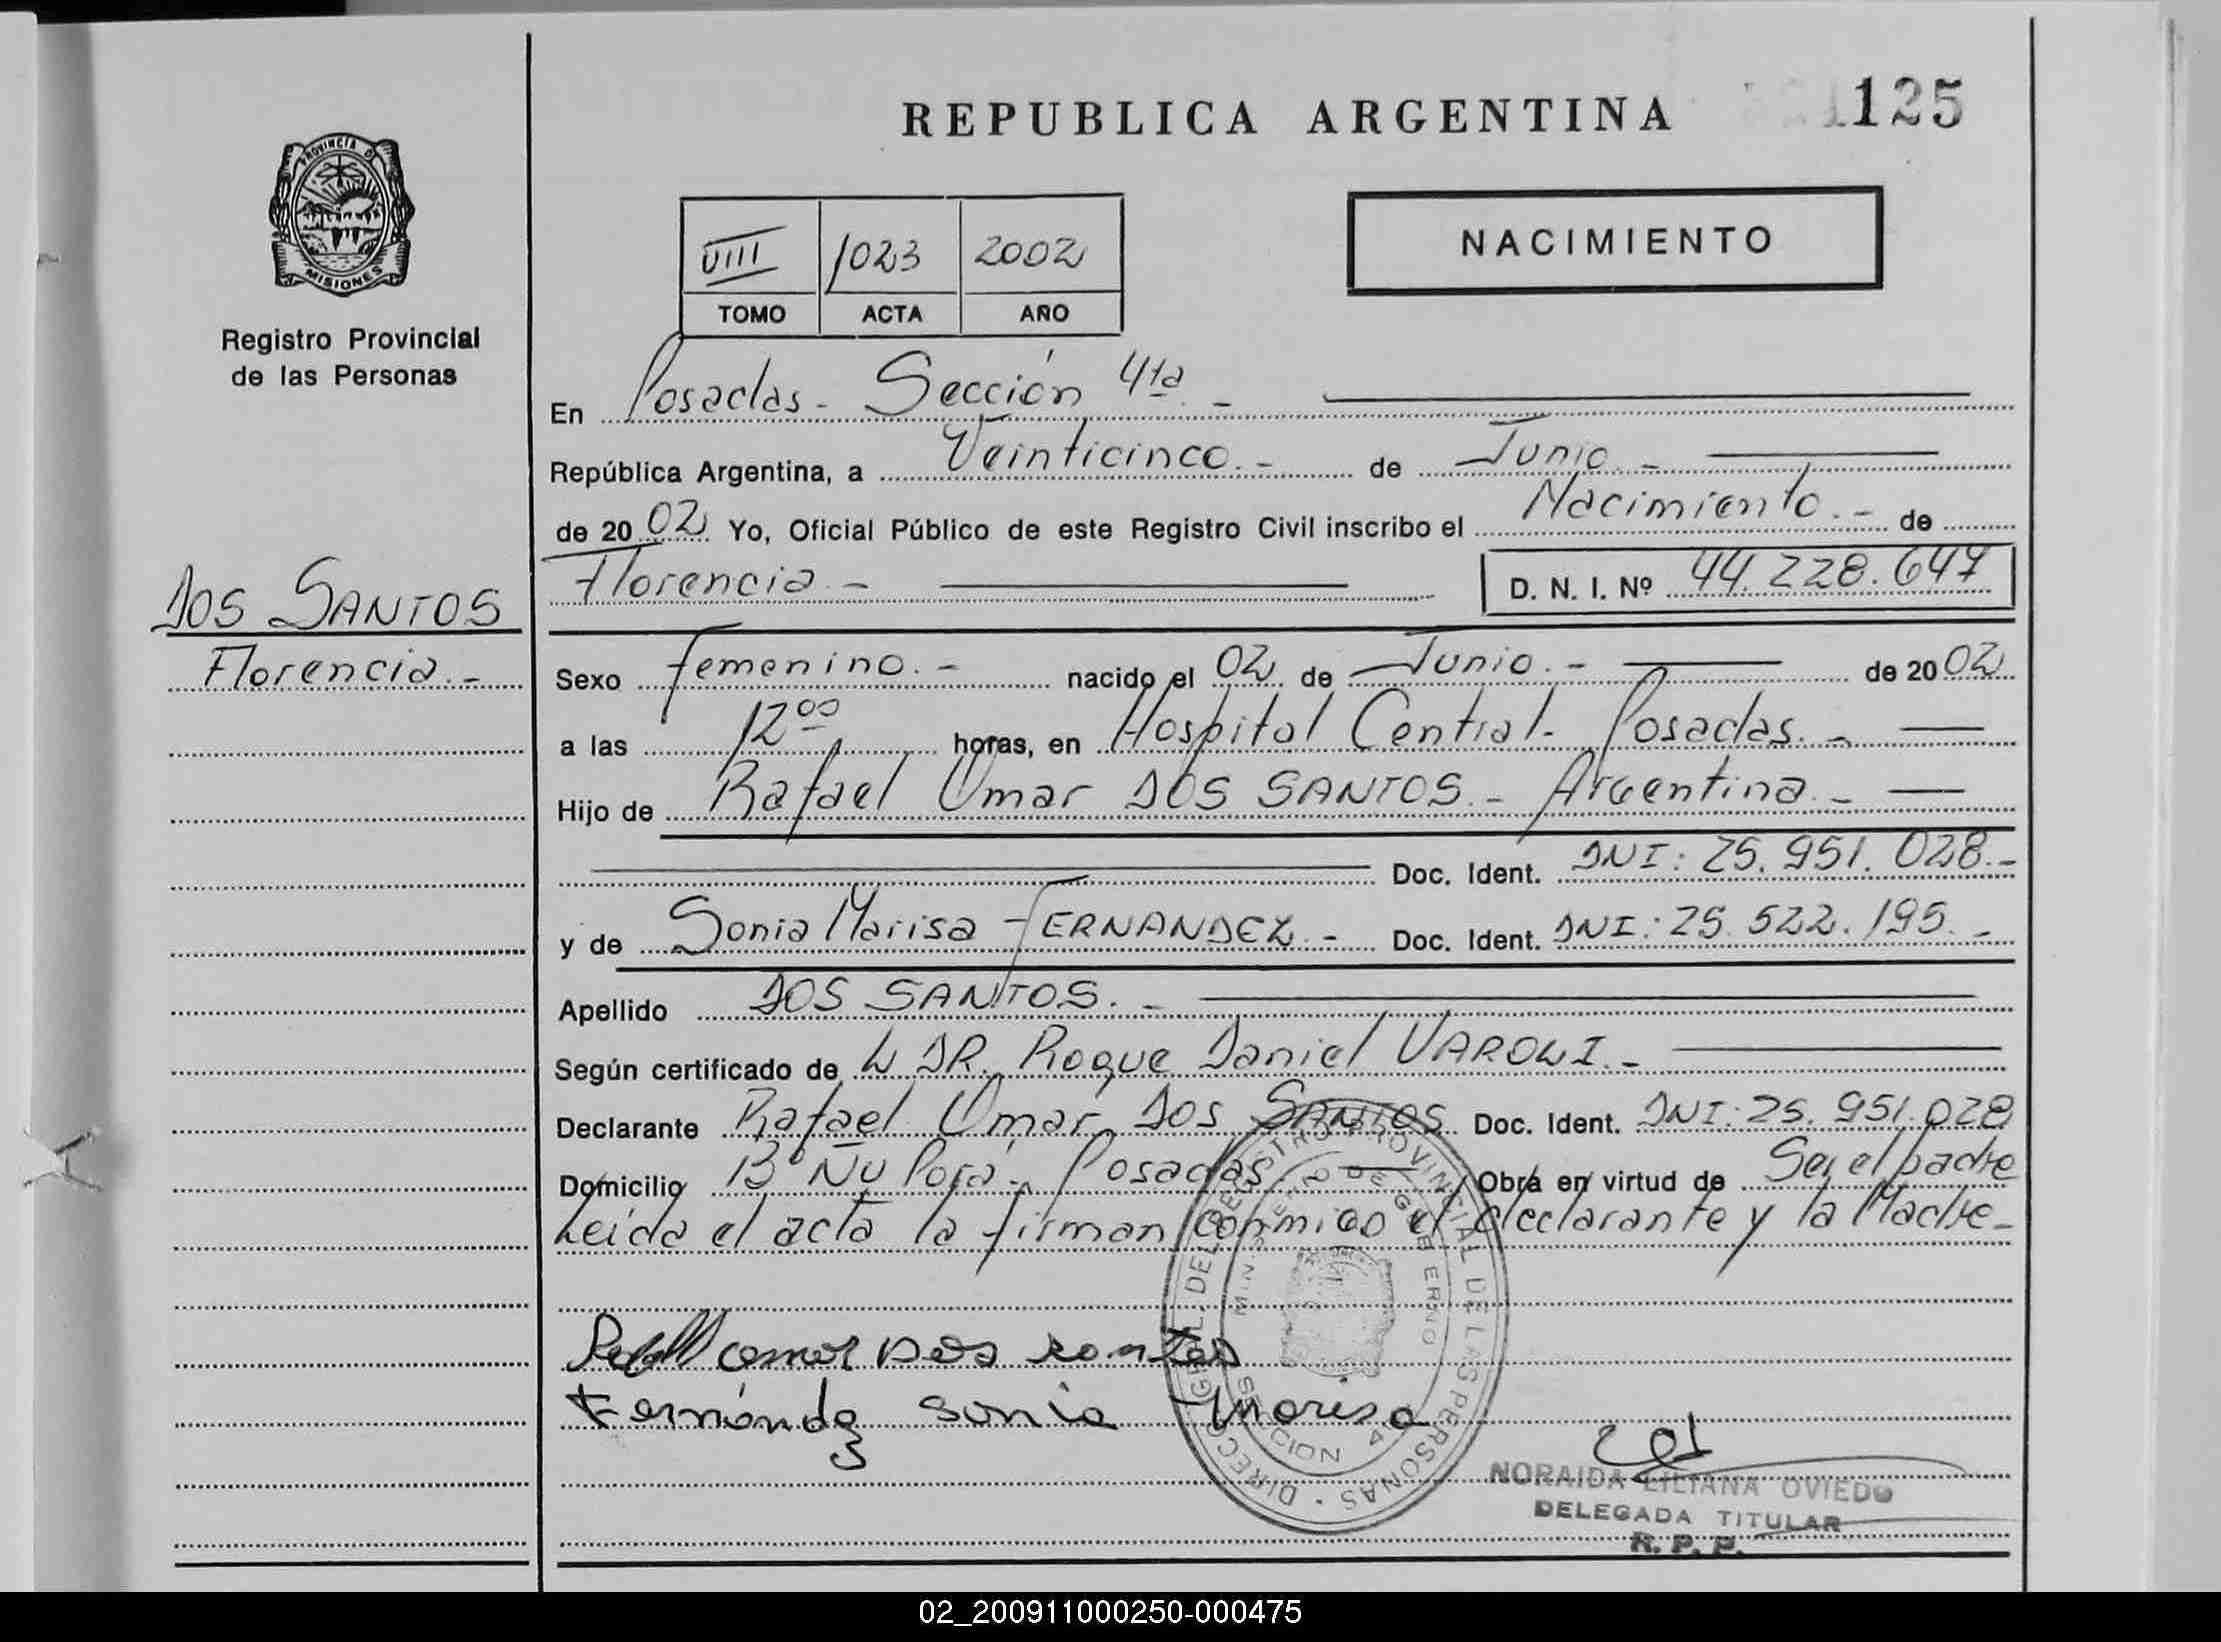 REPUBLICA ARGENTINA
125
PROVINCIA DE
MISIONES
Registro Provincial
de las Personas
NACIMIENTO
VIII 1023 2002
TOMO ACTA AÑO
En Posadas - Sección 4ta. -
República Argentina, a Veinticinco. - de Junio. -
de 2002 Yo, Oficial Público de este Registro Civil inscribo el Nacimiento. - de
Florencia. - D. N. I. Nº 44.228.647
DOS SANTOS
Florencia. -
Sexo femenino. - nacido el 02 de Junio. - de 2002
a las 12 00 horas, en Hospital Central - Posadas. -
Hijo de Rafael Omar DOS SANTOS. - Argentina. -
Doc. Ident. DNI: 25.951.028. -
y de Sonia Marisa FERNANDEZ. - Doc. Ident. DNI: 25.522.195. -
Apellido DOS SANTOS. -
Según certificado de L DR. Roque Daniel VAROLI. -
Declarante Rafael Omar DOS SANTOS Doc. Ident. DNI: 25.951.028
Domicilio Bº Ñu Porá - Posadas Obra en virtud de Ser el padre
Leida el acta la firman conmigo el declarante y la Madre -
omar Dos santos
Fernández Sonia Marisa
DIRECC. GRAL. DEL REGISTRO PROVINCIAL DE LAS PERSONAS
MINISTERIO DE GOBIERNO
SECCION 4
NORAIDA LILIANA OVIEDO
DELEGADA TITULAR
R. P. P.
02_200911000250-000475